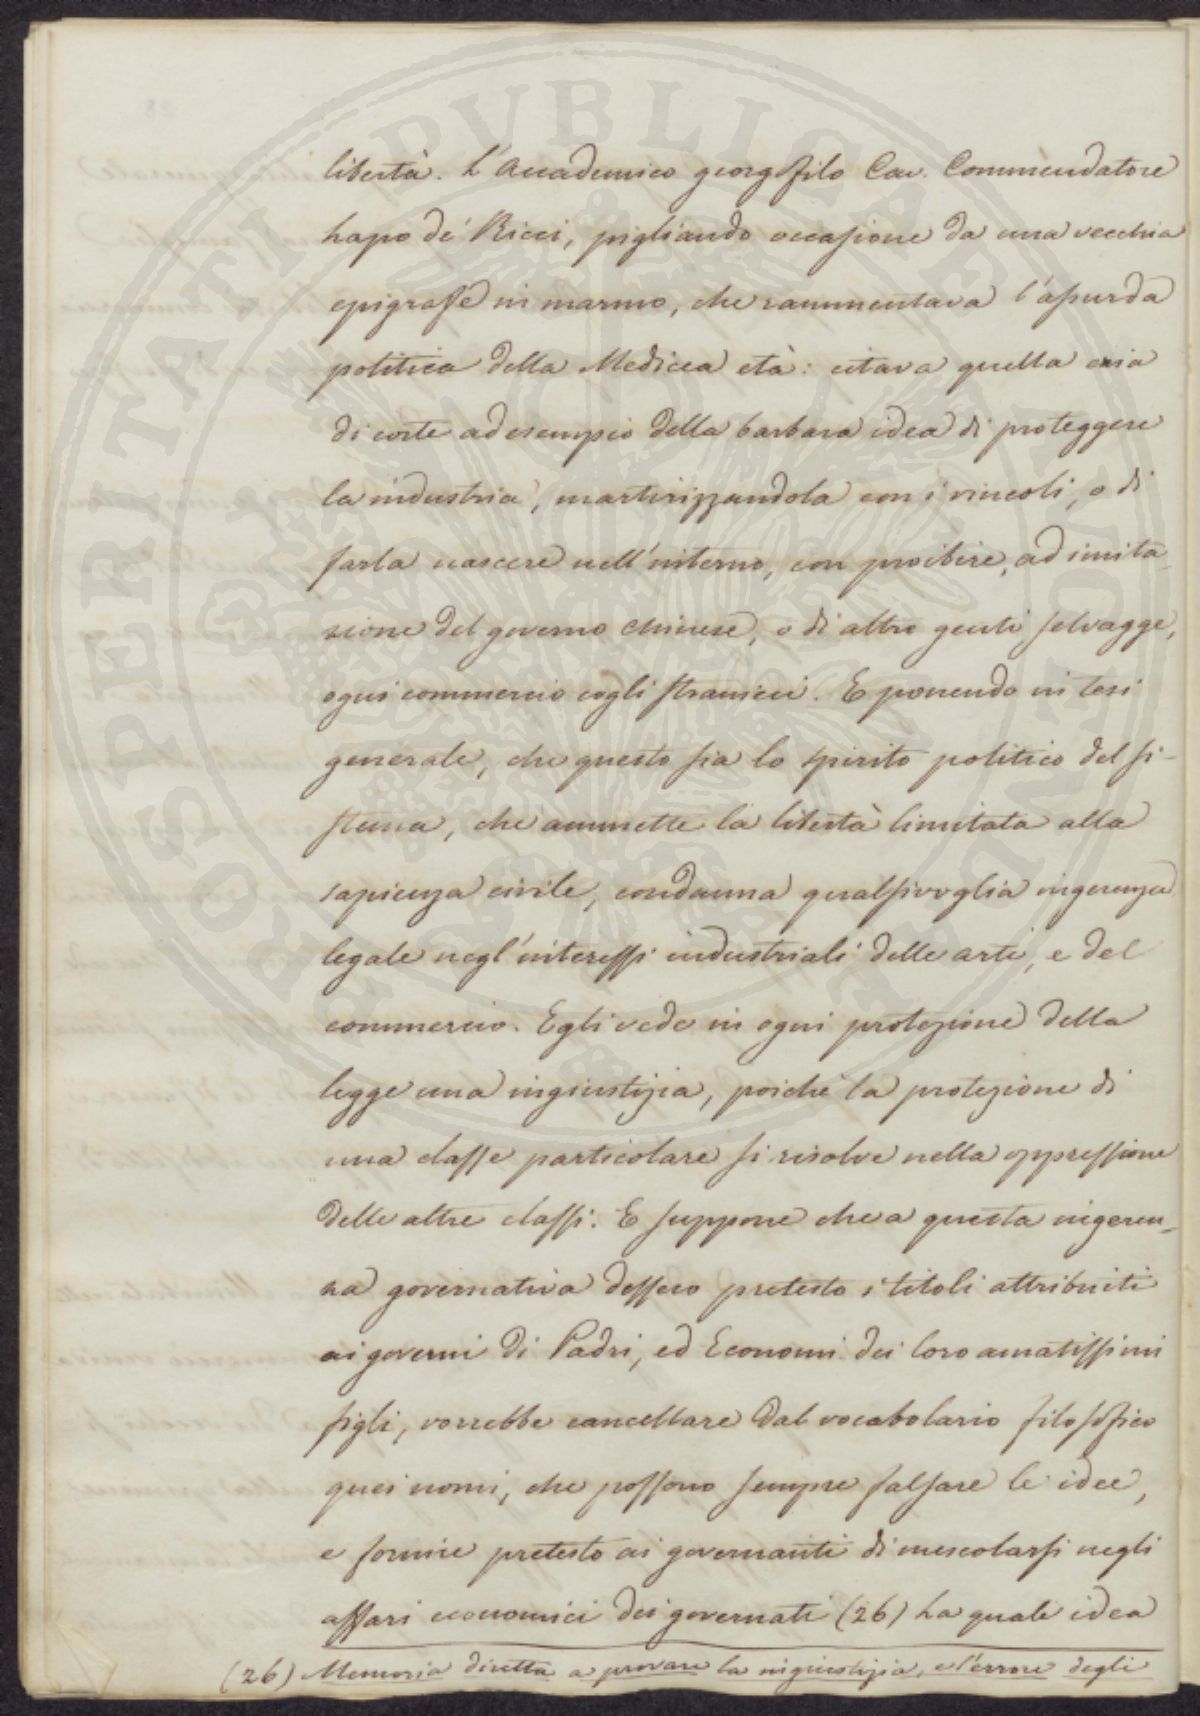 libertà. L'Accademico georgofilo Cav. Commendatore
Lapo de' Ricci, pigliando occasione da una vecchia
epigrafe in marmo, che rammentava l'assurda
politica della Medicea età: citava quella
di corte ad esempio della barbara idea di proteggere
la industria, martirizzandola con i vincoli, o di
farla nascere nell'interno, con proibire, ad imita-
zione del governo chinese, o di altre genti selvagge,
ogni commercio cogli stranieri. E ponendo in tesi
generale, che questo sia lo spirito politico del si-
stema, che ammette la libertà limitata alla
sapienza civile, condanna qualsivoglia ingerenza
legale negl'interessi industriali delle arti, e del
commercio. Egli vede in ogni protezione della
legge una ingiustizia, poiché la protezione di
una classe particolare si risolve nella oppressione
delle altre classi. E suppone che a questa ingeren-
za governativa dessero pretesto i titoli attribuiti
ai governi di Padri, ed Economi dei loro amatissimi
figli, vorrebbe cancellare dal vocabolario filosofico
quei nomi, che possono sempre falsare le idee,
e fornire pretesto ai governanti di mescolarsi negli
affari economici dei governati (26) La quale idea
(26) Memoria diretta a provare la ingiustizia, e l'errore degli
PROSPERITATI PUBLICAE